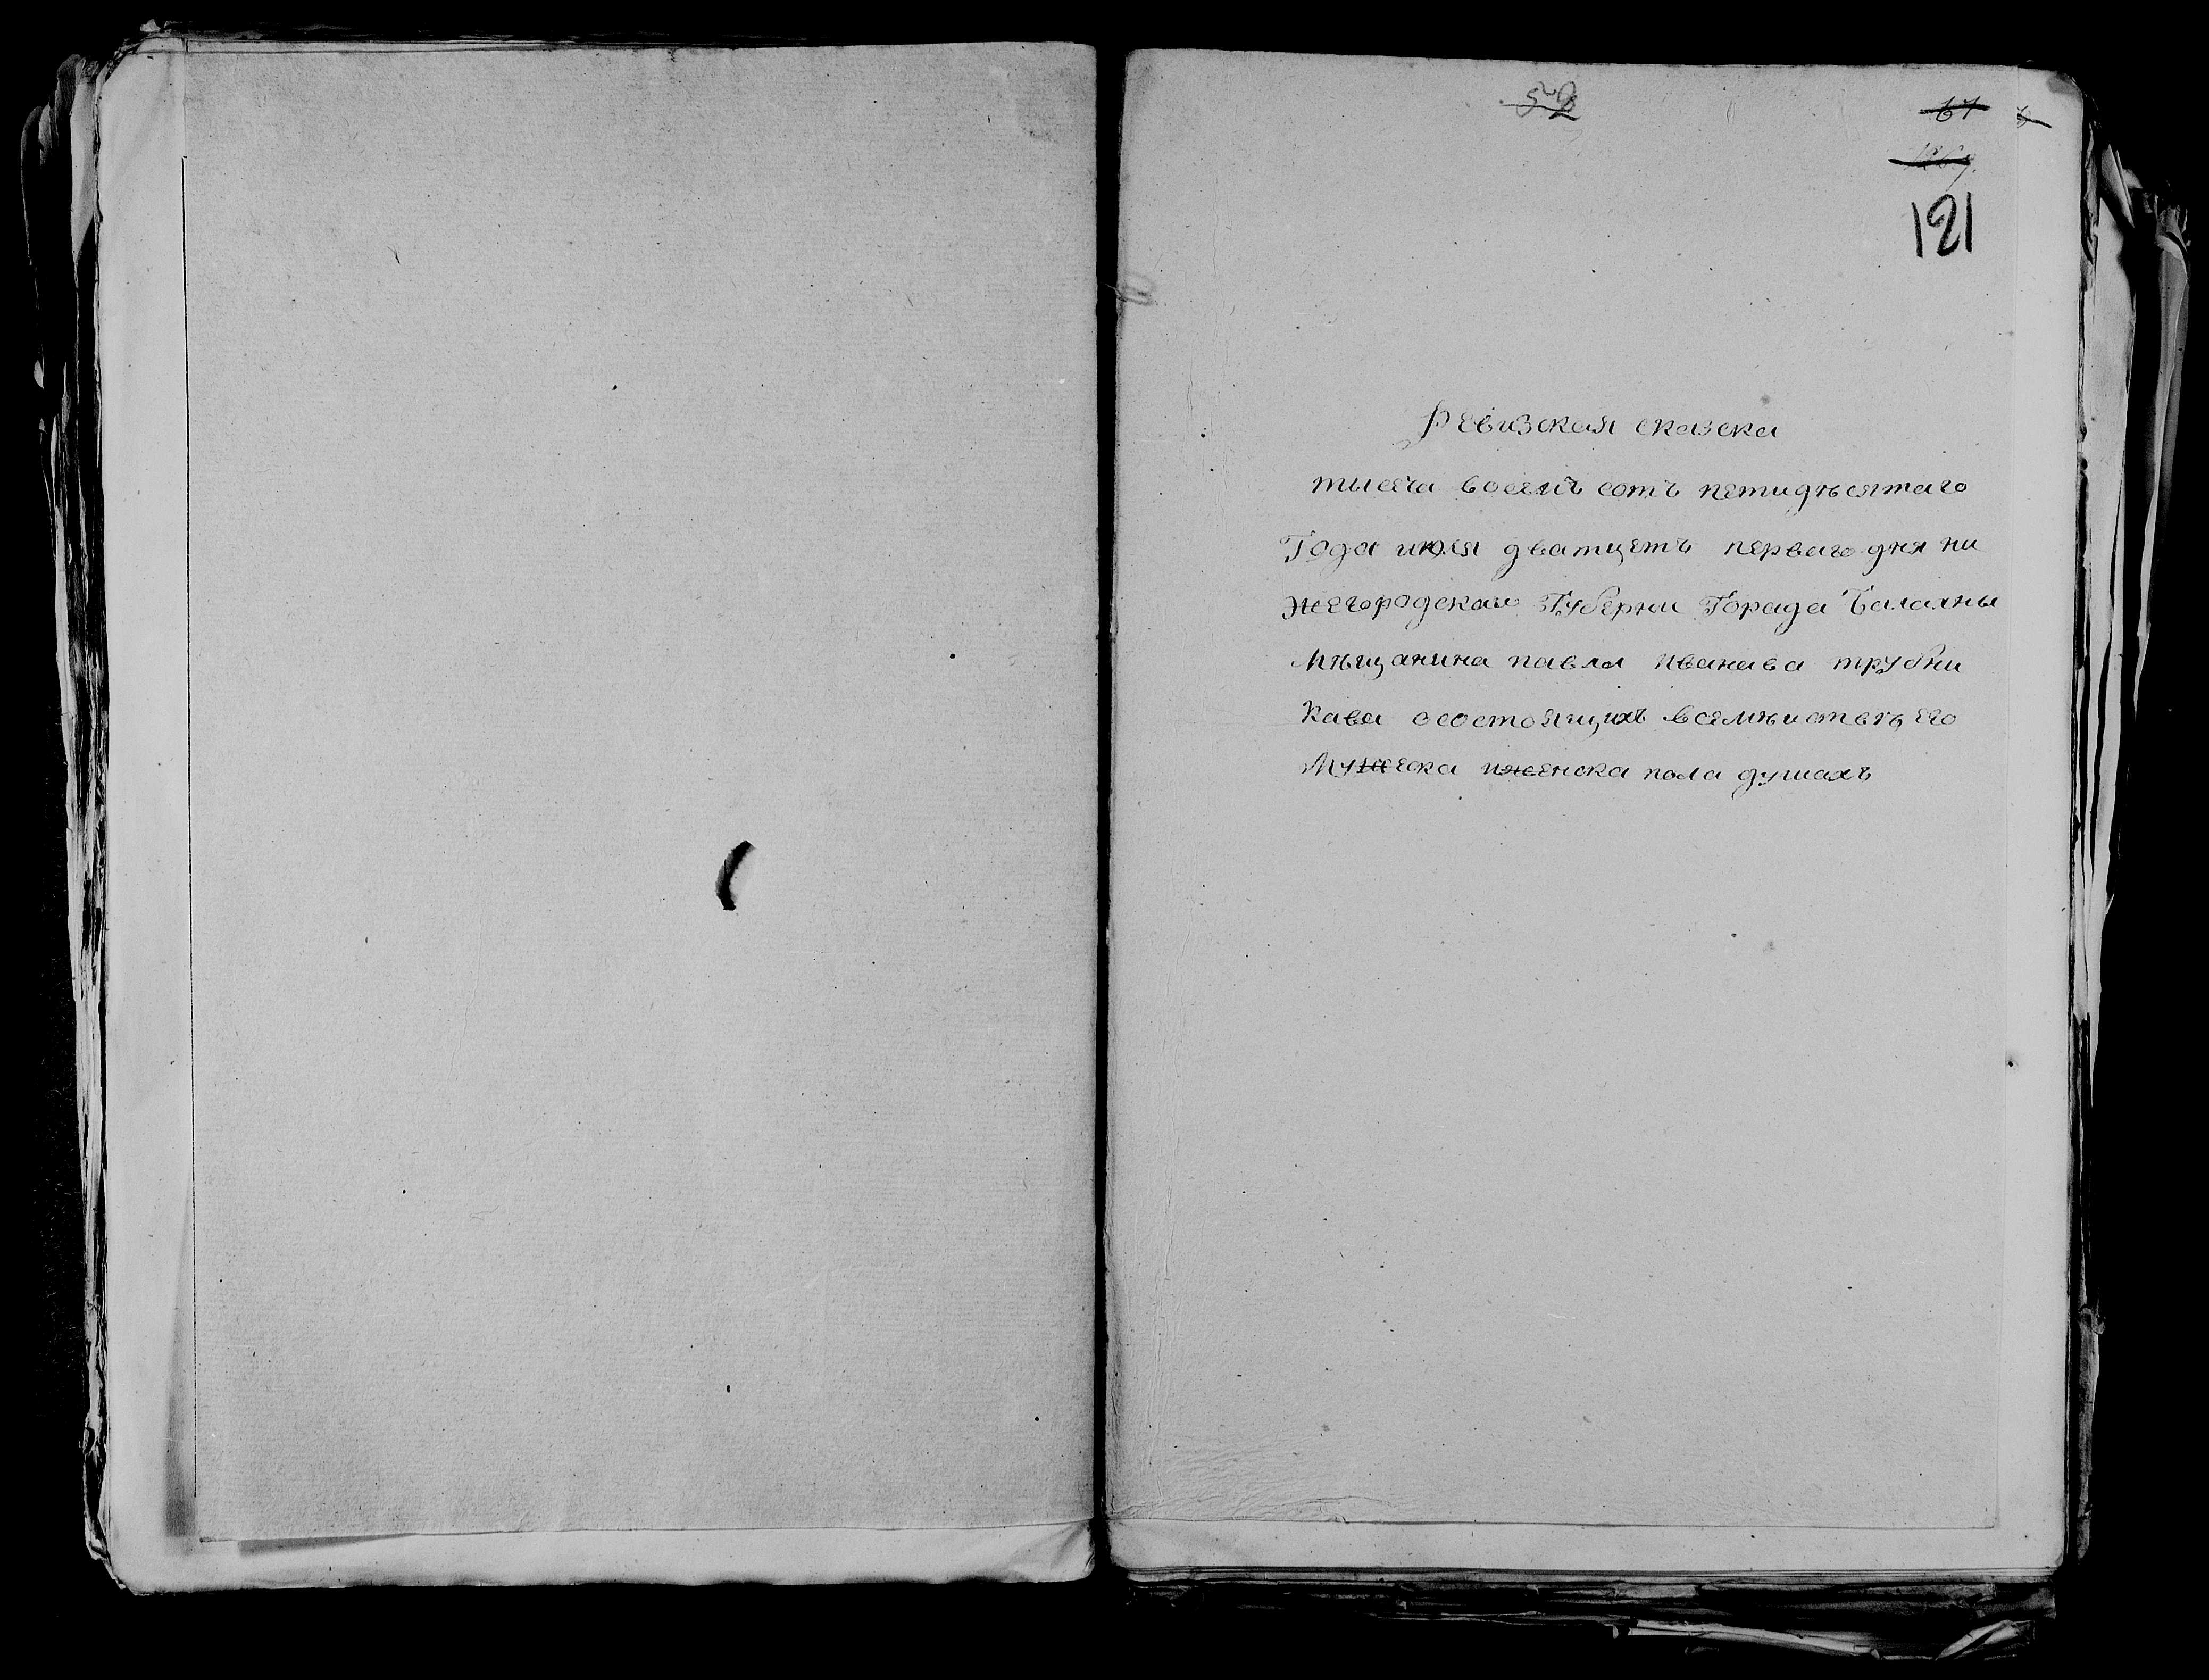 52
67
121
Ревизская сказска
тысеча восемъ сотъ петидѣсятаго
Года июля дватцеть перваго дня ни
жегородскаи Губерни Горада Балахны
Мѣщанина павла Иванава трубни
кава осостоящихъ всемѣистевѣ его
Мужеска иженска пола душахъ